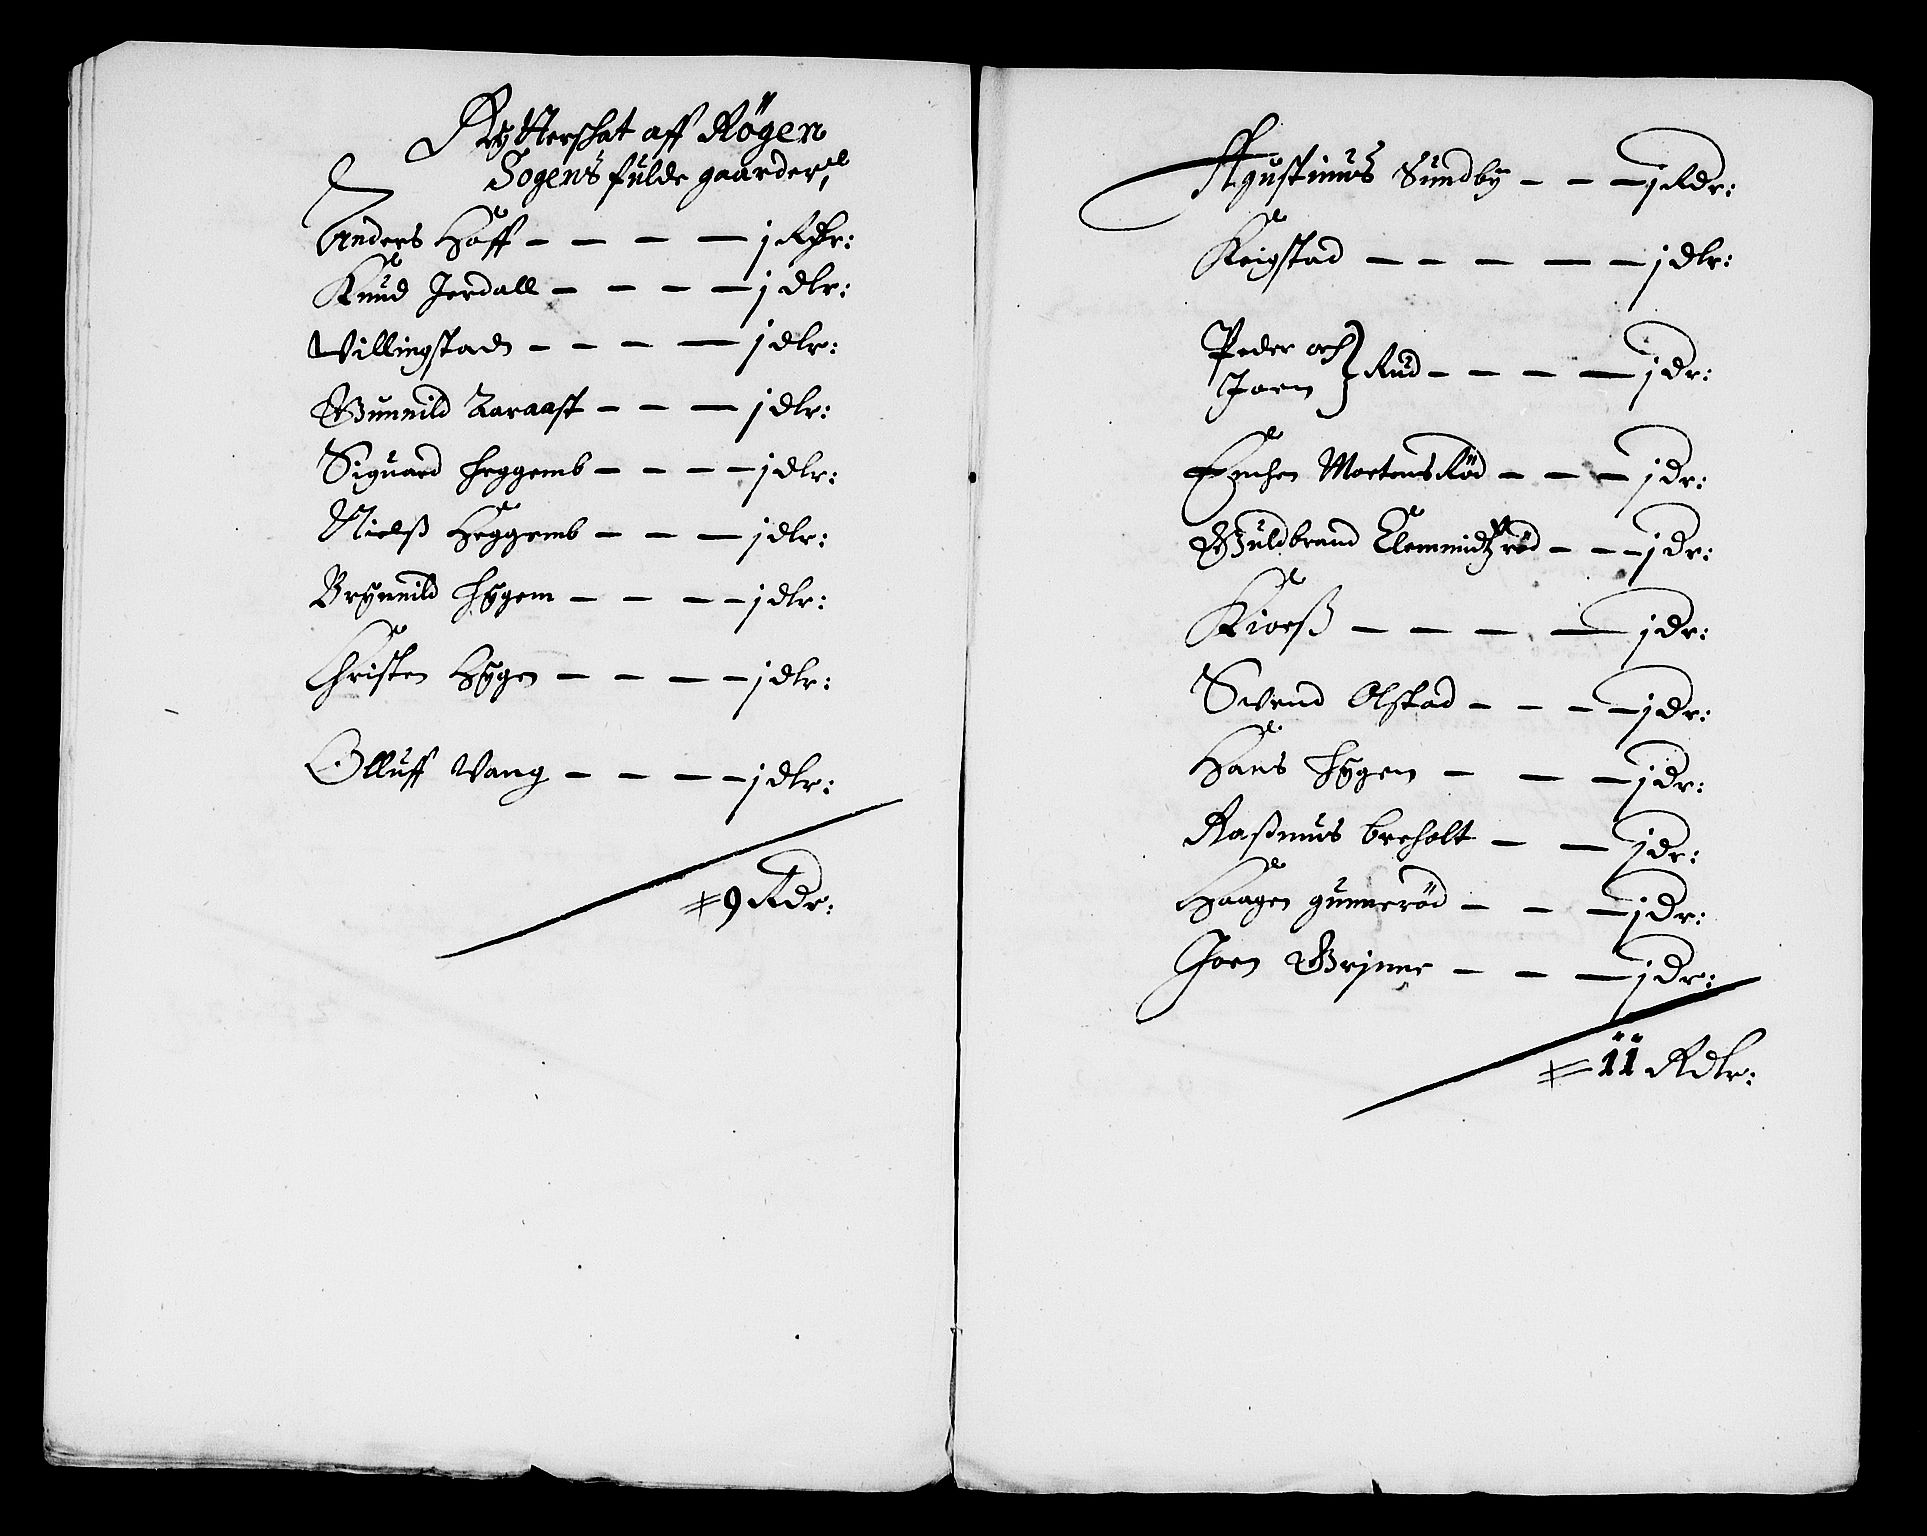 Rytterschat aff Rögen
Sogens fulde gaarder,
Anders Hoff - - - - j Rdr:
Knud Jerdall - - - - j dlr:
Villingstadn - - - - j dlr:
Gunnild Aaraast - - - j dlr:
Siguard Heggemb - - - - j dlr:
Nielß Heggemb - - - j dlr:
Brynnild Hygem - - - - j dlr:
Christen Hygen - - - - j dlr:
Olluff Vang - - - - j dlr:
9 Rdr:
Agustinus Sundby - - - j Rdr:
Krigstad - - - - - j dlr:
Peder och
Joen } Rud - - - - j dr:
Mortensröd - - - j dr:
Guldbrand Clemmidtzröd - - - j dr:
Kioeß - - - - j dr:
Svend Olstad - - - - j dr:
Hans Hygen - - - j dr:
Raßmus breholt - - j dr:
Haagen gunneröd - - - j dr:
Joen Grinne - - - j dr:
11 Rdlr: